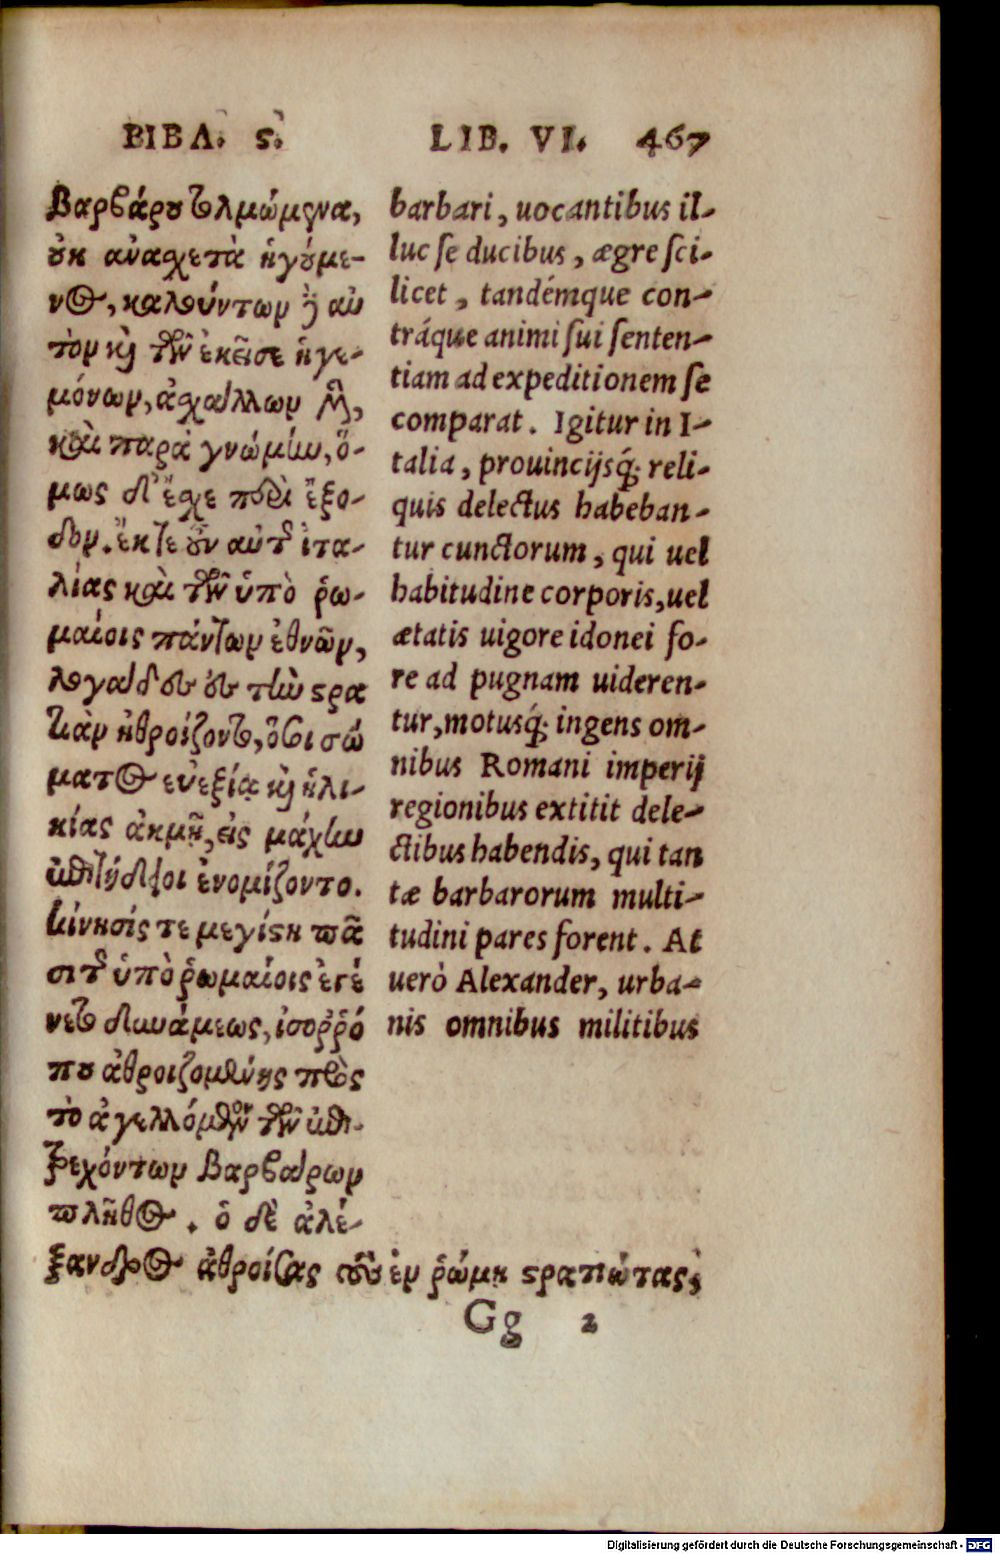 ΒΙΒΛ. ϛ.
LIB. VI. 467
βαρβάρου τολμώμενα,
οὐκ ἀναχετὰ ἡγούμε-
νος, καλούντων δὲ αὐ
τὸν καὶ τῶν ἐκεῖσε ἡγε-
μόνων, ἀσχάλλων μὲν,
καὶ παρὰ γνώμην, ὅ-
μως δ' ἔχε περὶ ἔξο-
δον. ἔκ τε οὖν αὐτῆς ἰτα-
λίας καὶ τῶν ὑπὸ ῥω-
μαίοις πάντων ἐθνῶν,
λογάδες ἐς τὴν στρα
τιὰν ἠθροίζοντο, ὅσοι σώ
ματος εὐεξίᾳ καὶ ἡλι-
κίας ἀκμῇ, εἰς μάχην
ἐπιτήδειοι ἐνομίζοντο.
κίνησίς τε μεγίστη πᾶ
σι τῆς ὑπὸ ῥωμαίοις ἐγέ
νετο δυνάμεως, ἰσορρό
που ἀθροιζομένης πρὸς
τὸ ἀγγελλόμενον τῶν ἐπι-
τρεχόντων βαρβάρων
πλῆθος. ὁ δὲ ἀλέ-
ξανδρος ἀθροίσας τοὺς ἐν ῥώμῃ στρατιώτας,
barbari, uocantibus il-
luc se ducibus, ægre sci-
licet, tandémque con-
tráque animi sui senten-
tiam ad expeditionem se
comparat. Igitur in I-
talia, prouincijsq́; reli-
quis delectus habeban-
tur cunctorum, qui uel
habitudine corporis, uel
ætatis uigore idonei fo-
re ad pugnam uideren-
tur, motusq́; ingens om-
nibus Romani imperij
regionibus extitit dele-
ctibus habendis, qui tan
tæ barbarorum multi-
tudini pares forent. At
uerò Alexander, urba-
nis omnibus militibus
Gg 2
Digitalisierung gefördert durch die Deutsche Forschungsgemeinschaft - DFG